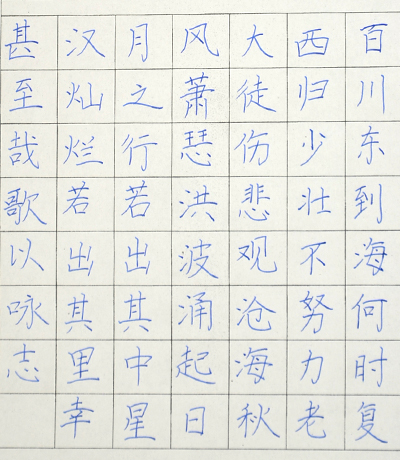 百川东到海何时复
西归少壮不努力老
大徒伤悲观沧海秋
风萧瑟洪波涌起日
月之行若出其中星
汉灿烂若出其里幸
甚至哉歌以咏志